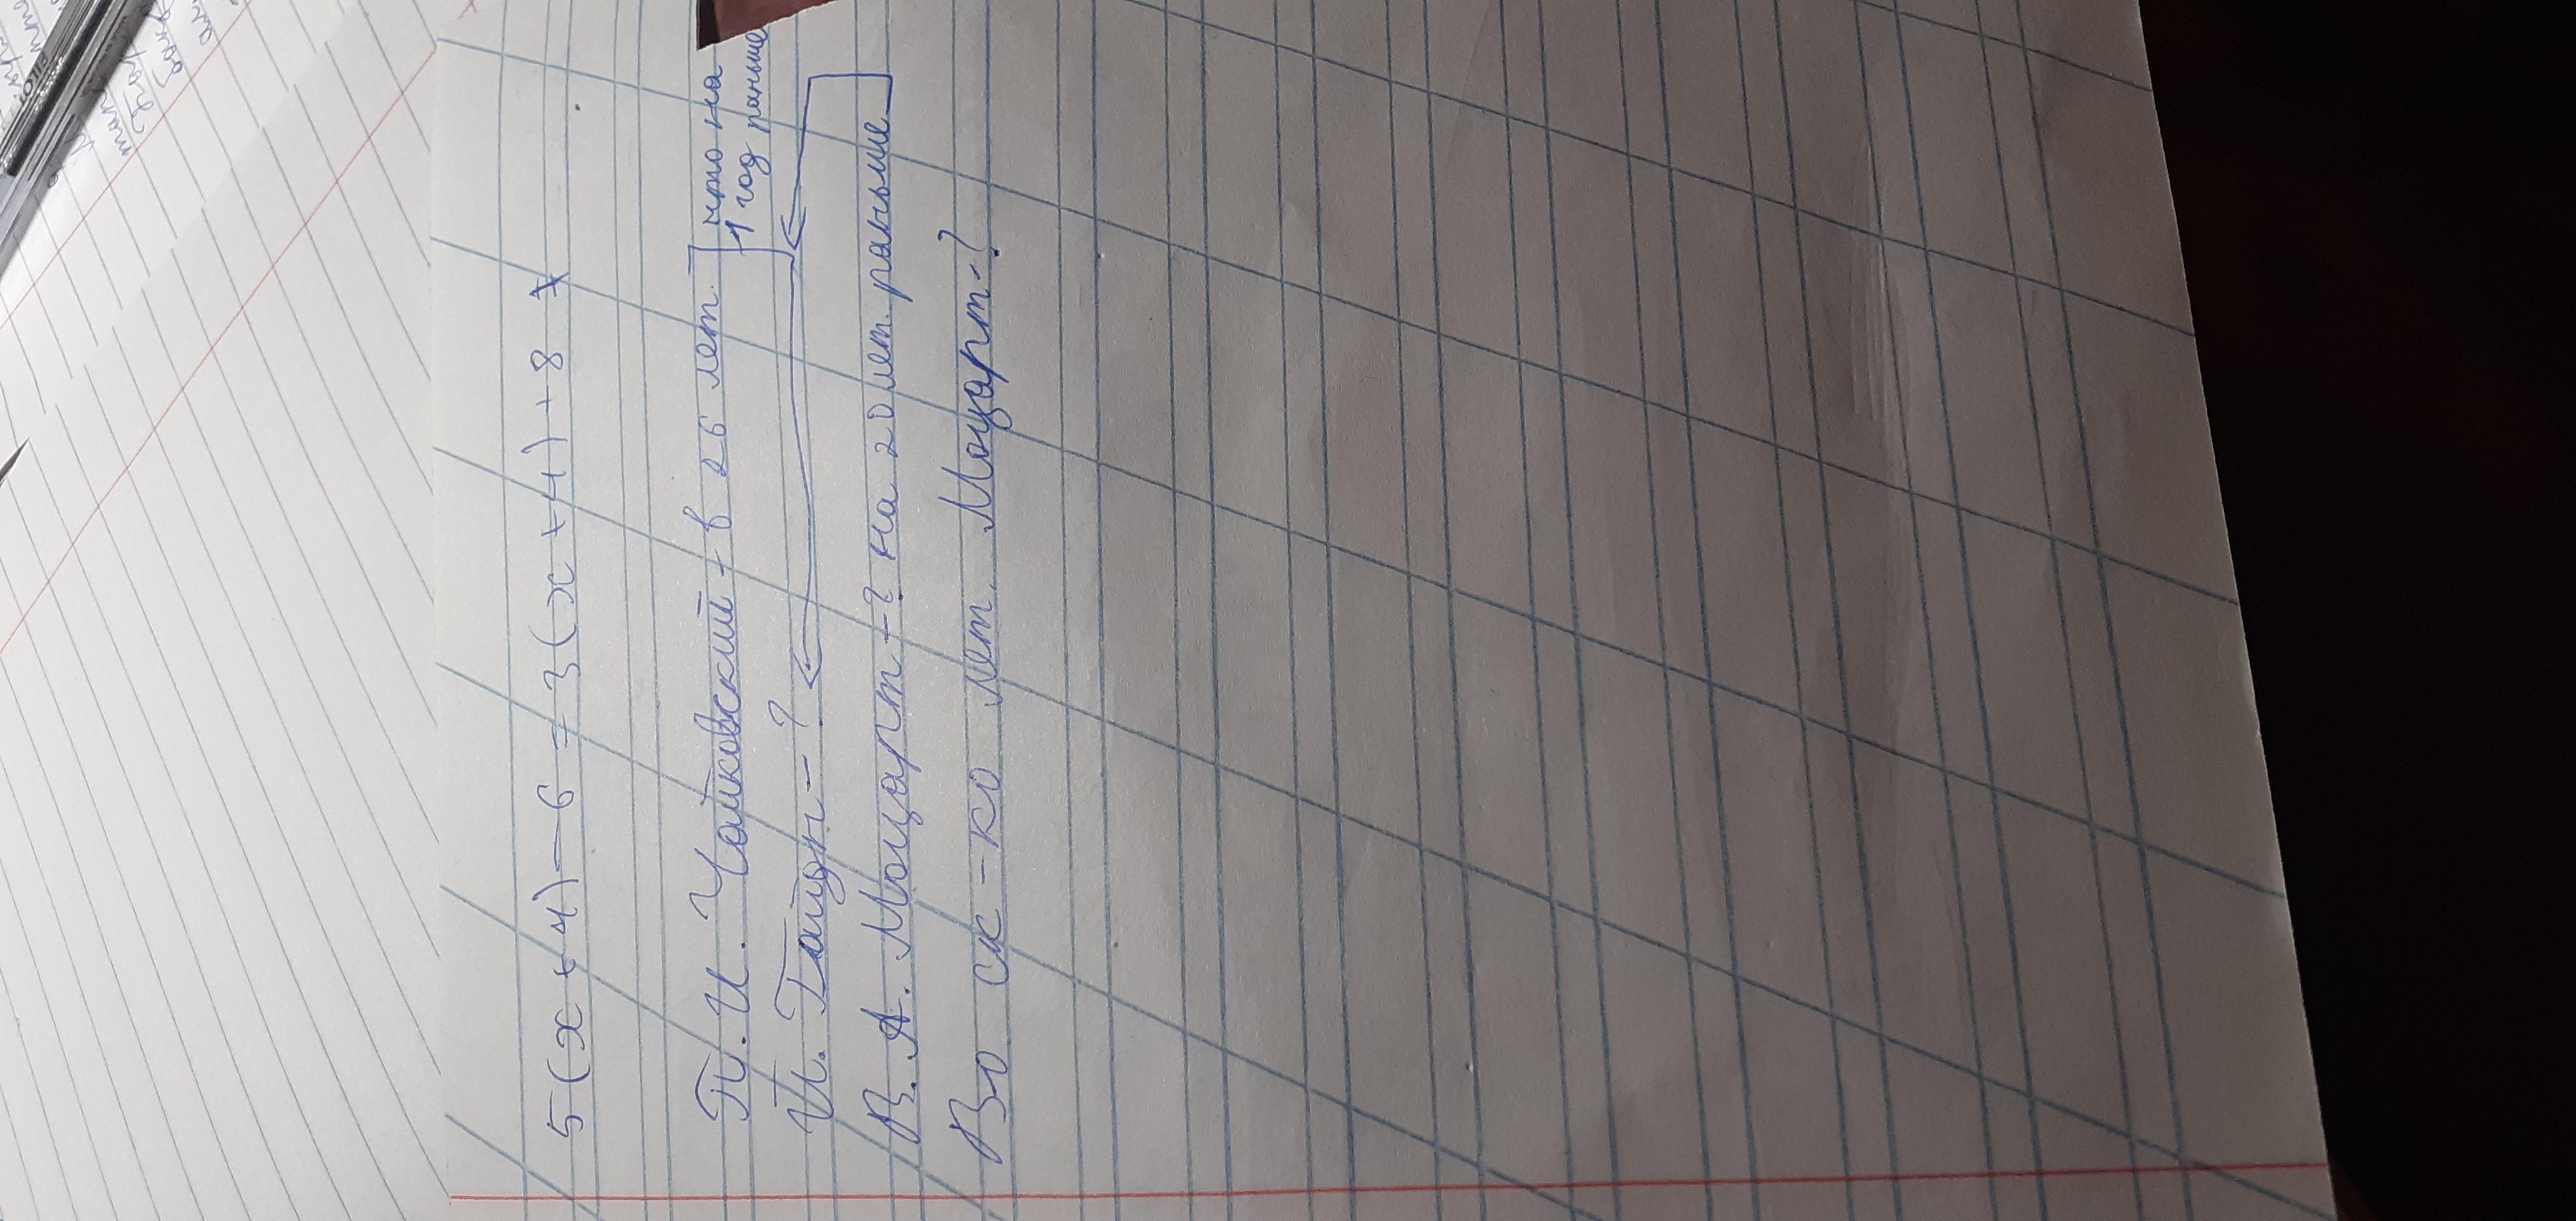 5(x+4)-6=3(x+4)+8x
П.И. Чайковский - в 26 лет. что на
1 год раньше
И. Гайдн - ?
В.А. Моцарт - ? на 20 лет. раньше
Во ск-ко лет. Моцарт-?